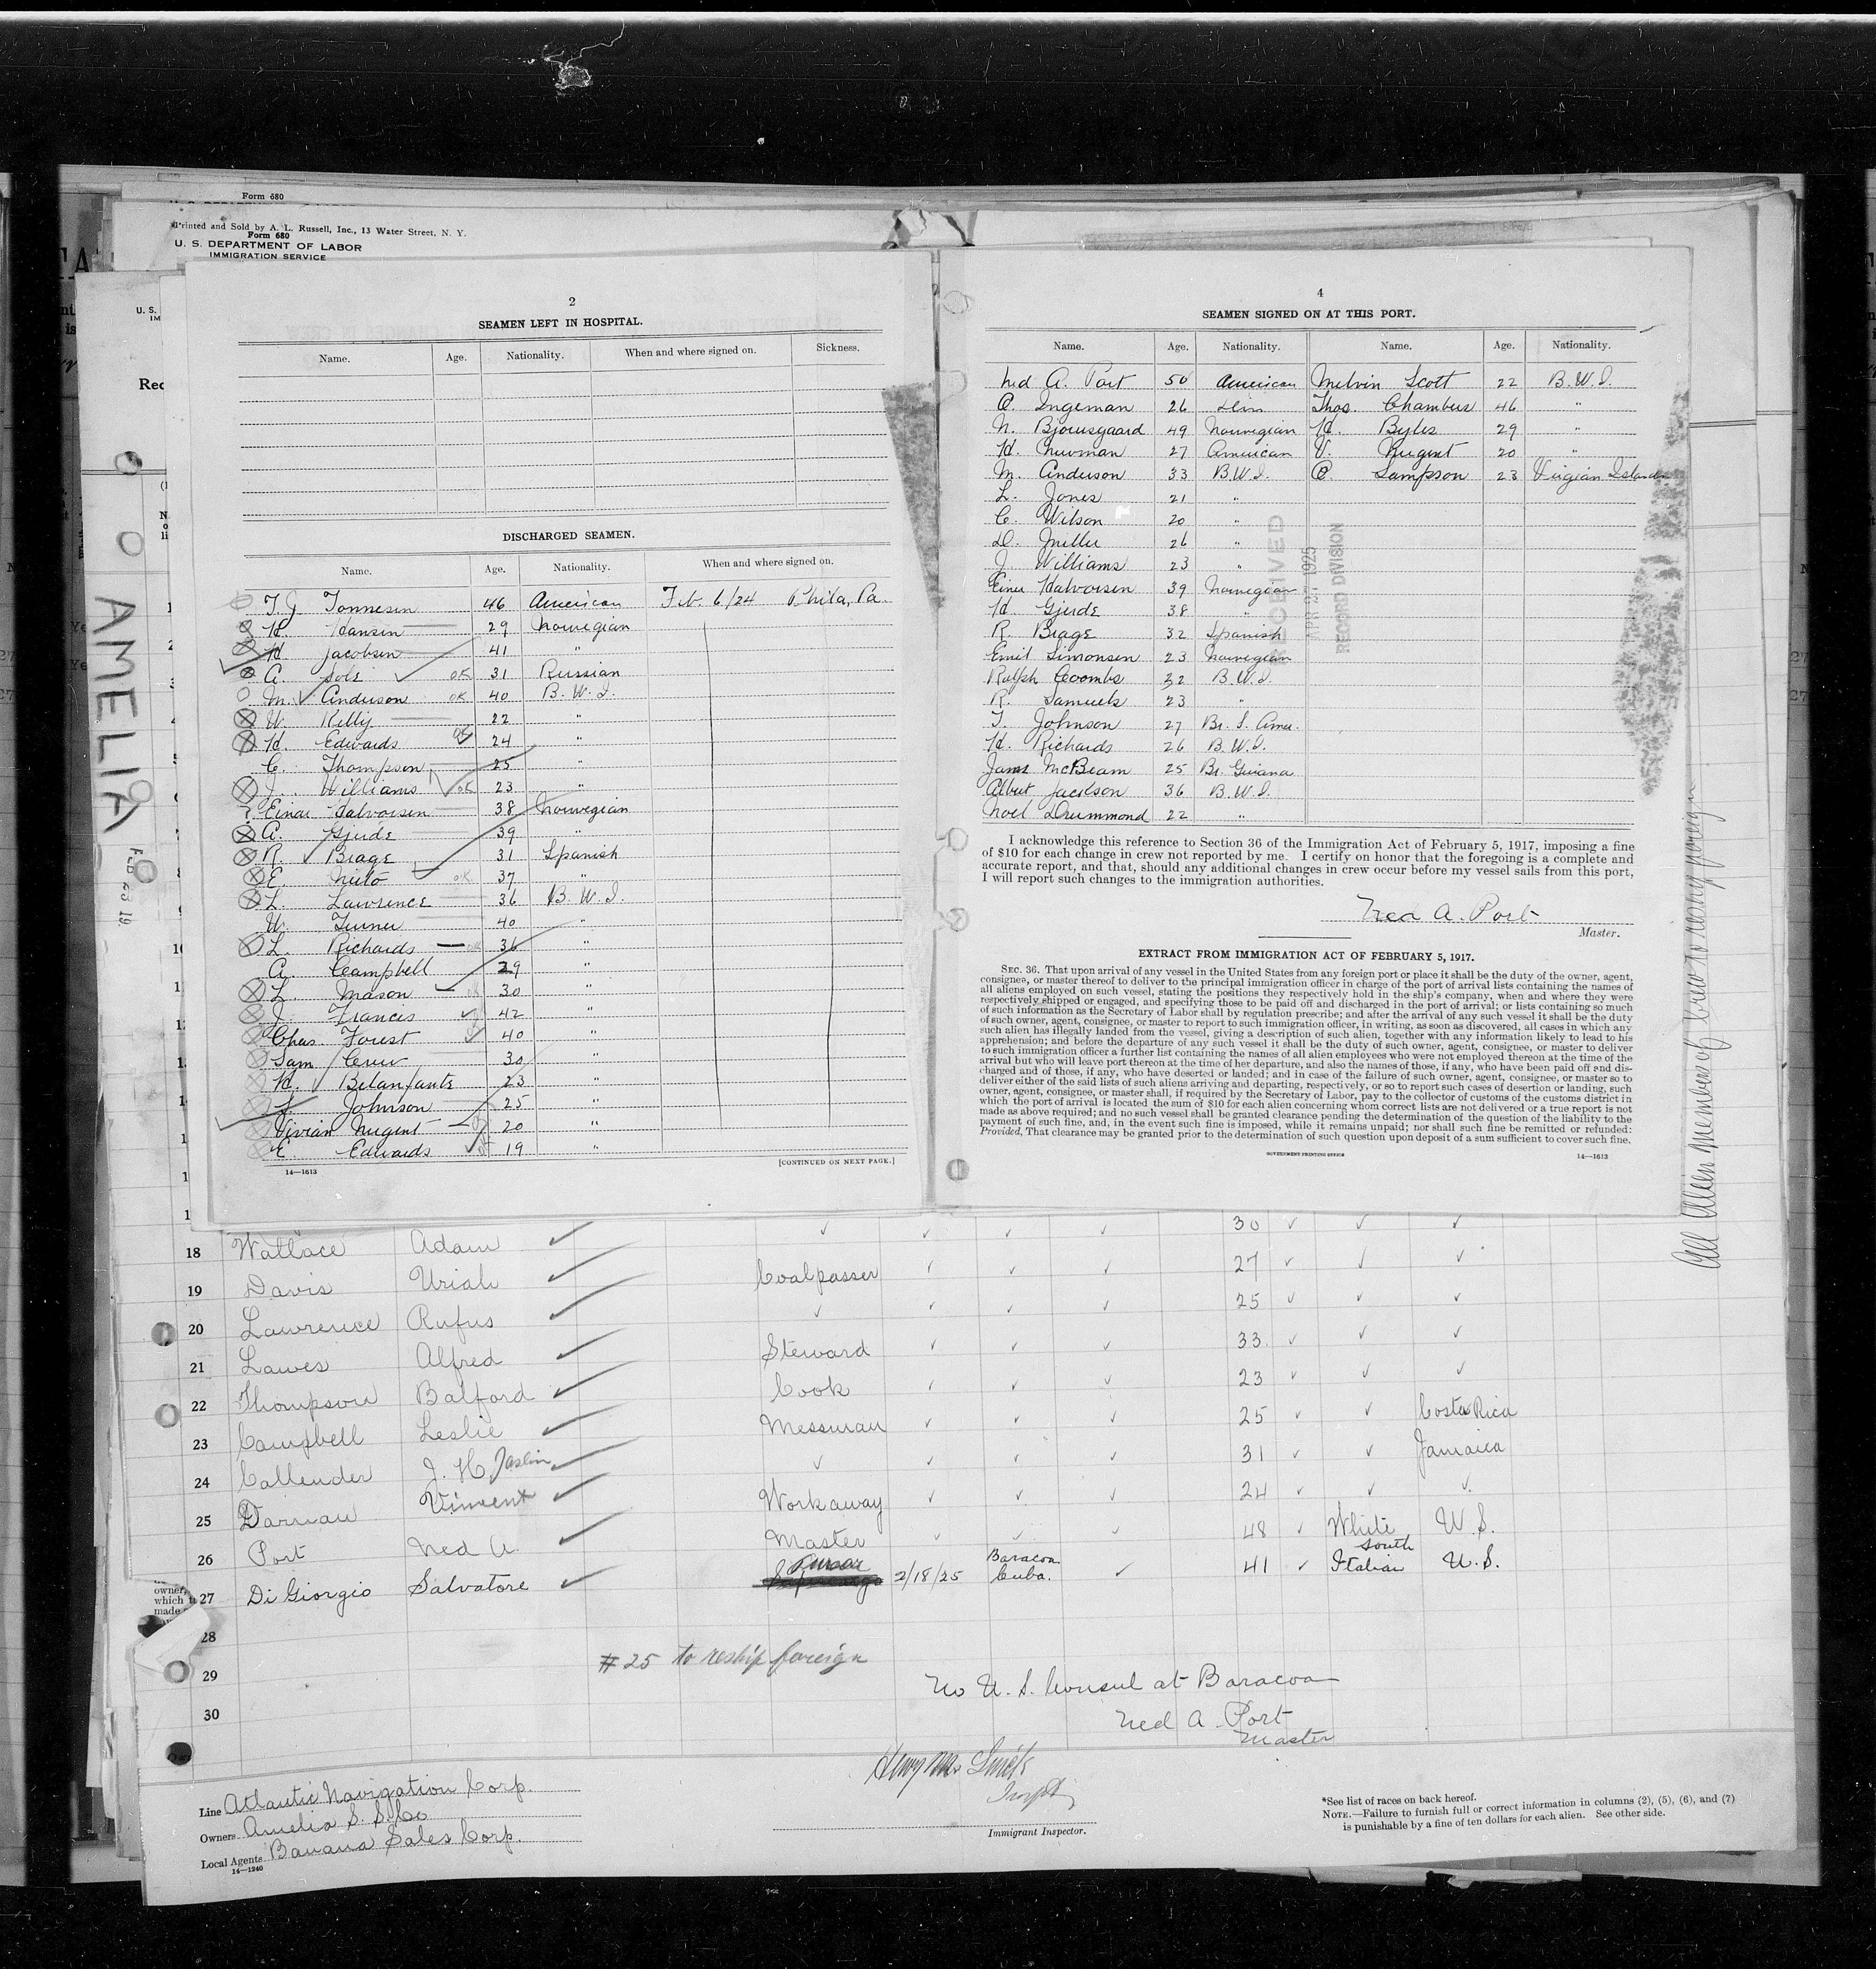 Form 680
Printed and Sold by A. L. Russell, Inc., 13 Water Street, N. Y.
Form 680
U. S. DEPARTMENT OF LABOR
IMMIGRATION SERVICE
U. S.
IM
Rec
AMELIA
FEB 23 19
2
SEAMEN LEFT IN HOSPITAL.
Name. Age. Nationality. When and where signed on. Sickness.
DISCHARGED SEAMEN.
Name. Age. Nationality. When and where signed on.
T. J. Tonnesen 46 American Feb. 6/24 Phila, Pa.
H. Hansen 29 Norwegian
H. Jacobsen 41 "
A. Sole OK 31 Russian
M. Anderson OK 40 B. W. I.
W. Kelly 22 "
H. Edwards OK 24 "
C. Thompson 25 "
J. Williams OK 23 "
Einar Halvorsen 38 Norwegian
A. Gjerde 39 "
R. Beage 31 Spanish
E. Nieto OK 37 "
L. Lawrence 36 B. W. I.
W. Turner 40 "
L. Richards OK 36 "
A. Campbell 29 "
L. Mason OK 30 "
J. Francis 42 "
Chas. Forest 40 "
Sam 30 "
H. Belanfante 23 "
Johnson 25 "
Vivian Nugent 20 "
E. Edwards 19 "
14—1613 [CONTINUED ON NEXT PAGE.]
4
SEAMEN SIGNED ON AT THIS PORT.
Name. Age. Nationality. Name. Age. Nationality.
Ned A. Port 50 American Melvin Scott 22 B. W. I.
C. Ingeman 26 Thos. Chambers 46 "
N. Bjornsgaard 49 Norwegian H. Byles 29 "
H. Newman 27 American V. Nugent 20 "
M. Anderson 33 B. W. I. C. Sampson 23 Virgian Islands
L. Jones 21 "
C. Wilson 20 "
D. Miller 26 "
J. Williams 23
Einer Halvorsen 39 Norwegian
H. Gjerde 38 "
R. Beage 32 Spanish
Emil Simonsen 23 Norwegian
Ralph Coombs 32 B. W. I.
R. Samuels 23 "
T. Johnson 27 Br. S. Amer.
H. Richards 26 B. W. I.
James McBeam 25 Br. Guiana
Albert Jackson 36 B. W. I.
Noel Drummond 22 "
RECEIVED
APR 27 1925
RECORD DIVISION
I acknowledge this reference to Section 36 of the Immigration Act of February 5, 1917, imposing a fine
of $10 for each change in crew not reported by me. I certify on honor that the foregoing is a complete and
accurate report, and that, should any additional changes in crew occur before my vessel sails from this port,
I will report such changes to the immigration authorities.
Ned A. Port
Master.
EXTRACT FROM IMMIGRATION ACT OF FEBRUARY 5, 1917.
SEC. 36. That upon arrival of any vessel in the United States from any foreign port or place it shall be the duty of the owner, agent,
consignee, or master thereof to deliver to the principal immigration officer in charge of the port of arrival lists containing the names of
all aliens employed on such vessel, stating the positions they respectively hold in the ship's company, when and where they were
respectively shipped or engaged, and specifying those to be paid off and discharged in the port of arrival; or lists containing so much
of such information as the Secretary of Labor shall by regulation prescribe; and after the arrival of any such vessel it shall be the duty
of such owner, agent, consignee, or master to report to such immigration officer, in writing, as soon as discovered, all cases in which any
such alien has illegally landed from the vessel, giving a description of such alien, together with any information likely to lead to his
apprehension; and before the departure of any such vessel it shall be the duty of such owner, agent, consignee, or master to deliver
to such immigration officer a further list containing the names of all alien employees who were not employed thereon at the time of the
arrival but who will leave port thereon at the time of her departure, and also the names of those, if any, who have been paid off and dis-
charged and of those, if any, who have deserted or landed; and in case of the failure of such owner, agent, consignee, or master so to
deliver either of the said lists of such aliens arriving and departing, respectively, or so to report such cases of desertion or landing, such
owner, agent, consignee, or master shall, if required by the Secretary of Labor, pay to the collector of customs of the customs district in
which the port of arrival is located the sum of $10 for each alien concerning whom correct lists are not delivered or a true report is not
made as above required; and no such vessel shall be granted clearance pending the determination of the question of the liability to the
payment of such fine, and, in the event such fine is imposed, while it remains unpaid; nor shall such fine be remitted or refunded:
Provided, That clearance may be granted prior to the determination of such question upon deposit of a sum sufficient to cover such fine.
GOVERNMENT PRINTING OFFICE 14—1613
All Alien members of crew to reship foreign
18 Wallace Adam 30
19 Davis Uriah Coalpasser 27
20 Lawrence Rufus 25
21 Lawes Alfred Steward 33
22 Thompson Balford Cook 23
23 Campbell Leslie Messman 25 Costa Rica
24 Callender J. H. Joslin 31 Jamaica
25 Darnau Vincent Workaway 24
26 Port Ned A. Master 48 White U. S.
27 Di Giorgio Salvatore Purser 2/18/25 Baracoa Cuba. 41 South Italian U. S.
28
29
30
owner,
which
made
#25 to reship foreign
No U. S. Consul at Baracoa
Ned A. Port
Master
Immigrant Inspector.
Line Atlantic Navigation Corp.
Owners Amelia S. S. Co
Local Agents Banana Sales Corp.
14—1240
*See list of races on back hereof.
NOTE.—Failure to furnish full or correct information in columns (2), (5), (6), and (7)
is punishable by a fine of ten dollars for each alien. See other side.